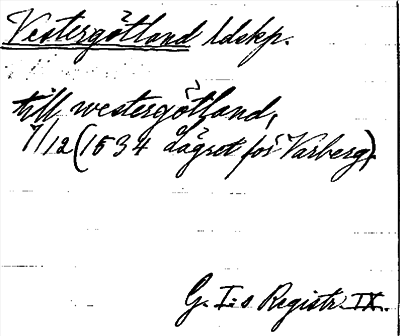 Vestergötland ldskp.
till westergötland,
7/12 (1534 lägret för Varberg).
G. I:s Registr. IX.